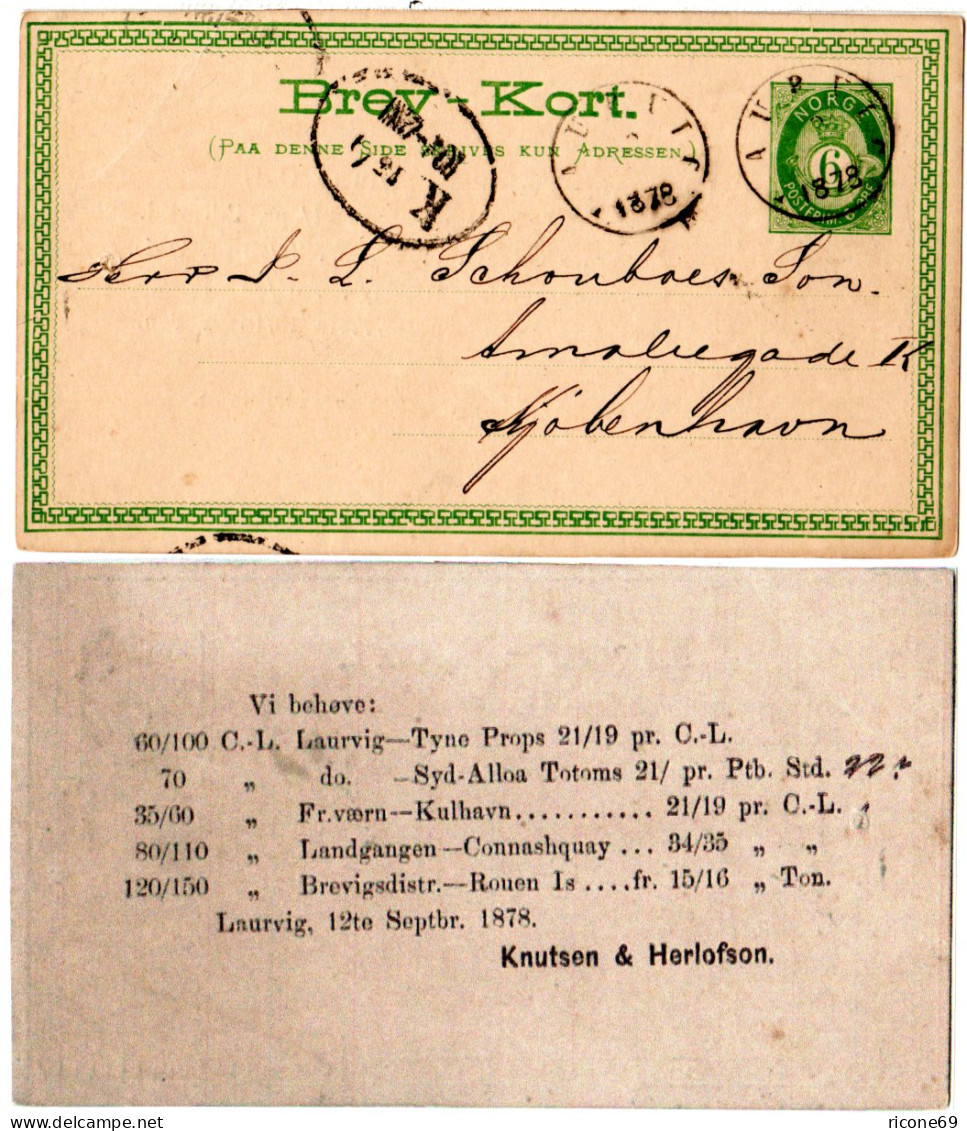 Brev-Kort.
(PAA DENNE SIDE SKRIVES KUN ADRESSEN.)
NORGE
6
POSTFRIM. 6 ØRE
1878
1878
K
Herr J. L. Schouboes Søn.
Amaliegade K
Kjøbenhavn
Vi behøve:
60/100 C.-L. Laurvig—Tyne Props 21/19 pr. C.-L.
70 „ do. —Syd-Alloa Totoms 21/ pr. Ptb. Std. 22.
35/60 „ Fr.værn—Kulhavn........... 21/19 pr. C.-L.
80/110 „ Landgangen—Connashquay ... 34/35 „ „
120/150 „ Brevigsdistr.—Rouen Is ....fr. 15/16 „ Ton.
Laurvig, 12te Septbr. 1878.
Knutsen & Herlofson.
delcampe.net
ricone69